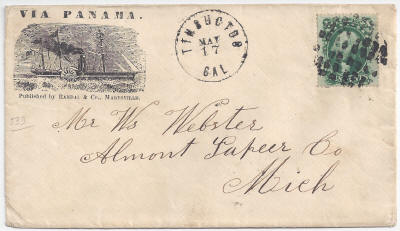 VIA PANAMA.
Published by RANDAL & Co., MARYSVILLE.
TIMBUCTOO
MAY
17
CAL
533
Mr Ws Webster
Almont Lapeer Co
Mich